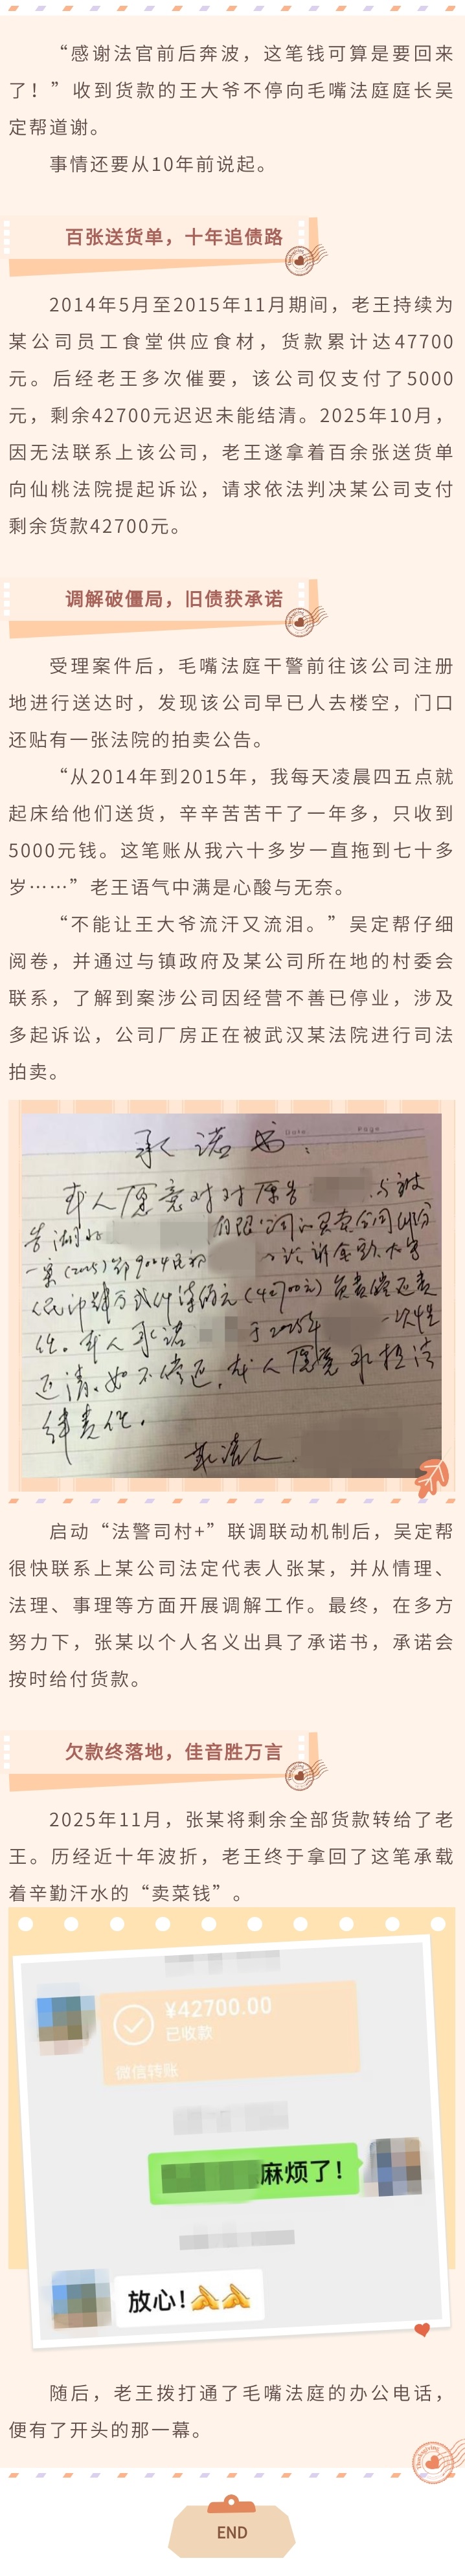 “感谢法官前后奔波，这笔钱可算是要回来
了！”收到货款的王大爷不停向毛嘴法庭庭长吴
定帮道谢。
事情还要从10年前说起。
百张送货单，十年追债路
2014年5月至2015年11月期间，老王持续为
某公司员工食堂供应食材，货款累计达47700
元。后经老王多次催要，该公司仅支付了5000
元，剩余42700元迟迟未能结清。2025年10月，
因无法联系上该公司，老王遂拿着百余张送货单
向仙桃法院提起诉讼，请求依法判决某公司支付
剩余货款42700元。
调解破僵局，旧债获承诺
受理案件后，毛嘴法庭干警前往该公司注册
地进行送达时，发现该公司早已人去楼空，门口
还贴有一张法院的拍卖公告。
“从2014年到2015年，我每天凌晨四五点就
起床给他们送货，辛辛苦苦干了一年多，只收到
5000元钱。这笔账从我六十多岁一直拖到七十多
岁……”老王语气中满是心酸与无奈。
“不能让王大爷流汗又流泪。”吴定帮仔细
阅卷，并通过与镇政府及某公司所在地的村委会
联系，了解到案涉公司因经营不善已停业，涉及
多起诉讼，公司厂房正在被武汉某法院进行司法
拍卖。
Date Page
承诺书：
本人愿意对对原告 与被
告湖北 有限公司的买卖合同纠纷
一案(2025)鄂9004民初 诉讼金额大写
人民币肆万贰仟柒佰元(42700元)负责偿还责
任。本人承诺 于2025年 一次性
还清。如不偿还，本人愿意承担法
律责任。
承诺人
启动“法警司村+”联调联动机制后，吴定帮
很快联系上某公司法定代表人张某，并从情理、
法理、事理等方面开展调解工作。最终，在多方
努力下，张某以个人名义出具了承诺书，承诺会
按时给付货款。
欠款终落地，佳音胜万言
2025年11月，张某将剩余全部货款转给了老
王。历经近十年波折，老王终于拿回了这笔承载
着辛勤汗水的“卖菜钱”。
¥42700.00
已收款
微信转账
麻烦了！
放心！
随后，老王拨打通了毛嘴法庭的办公电话，
便有了开头的那一幕。
END